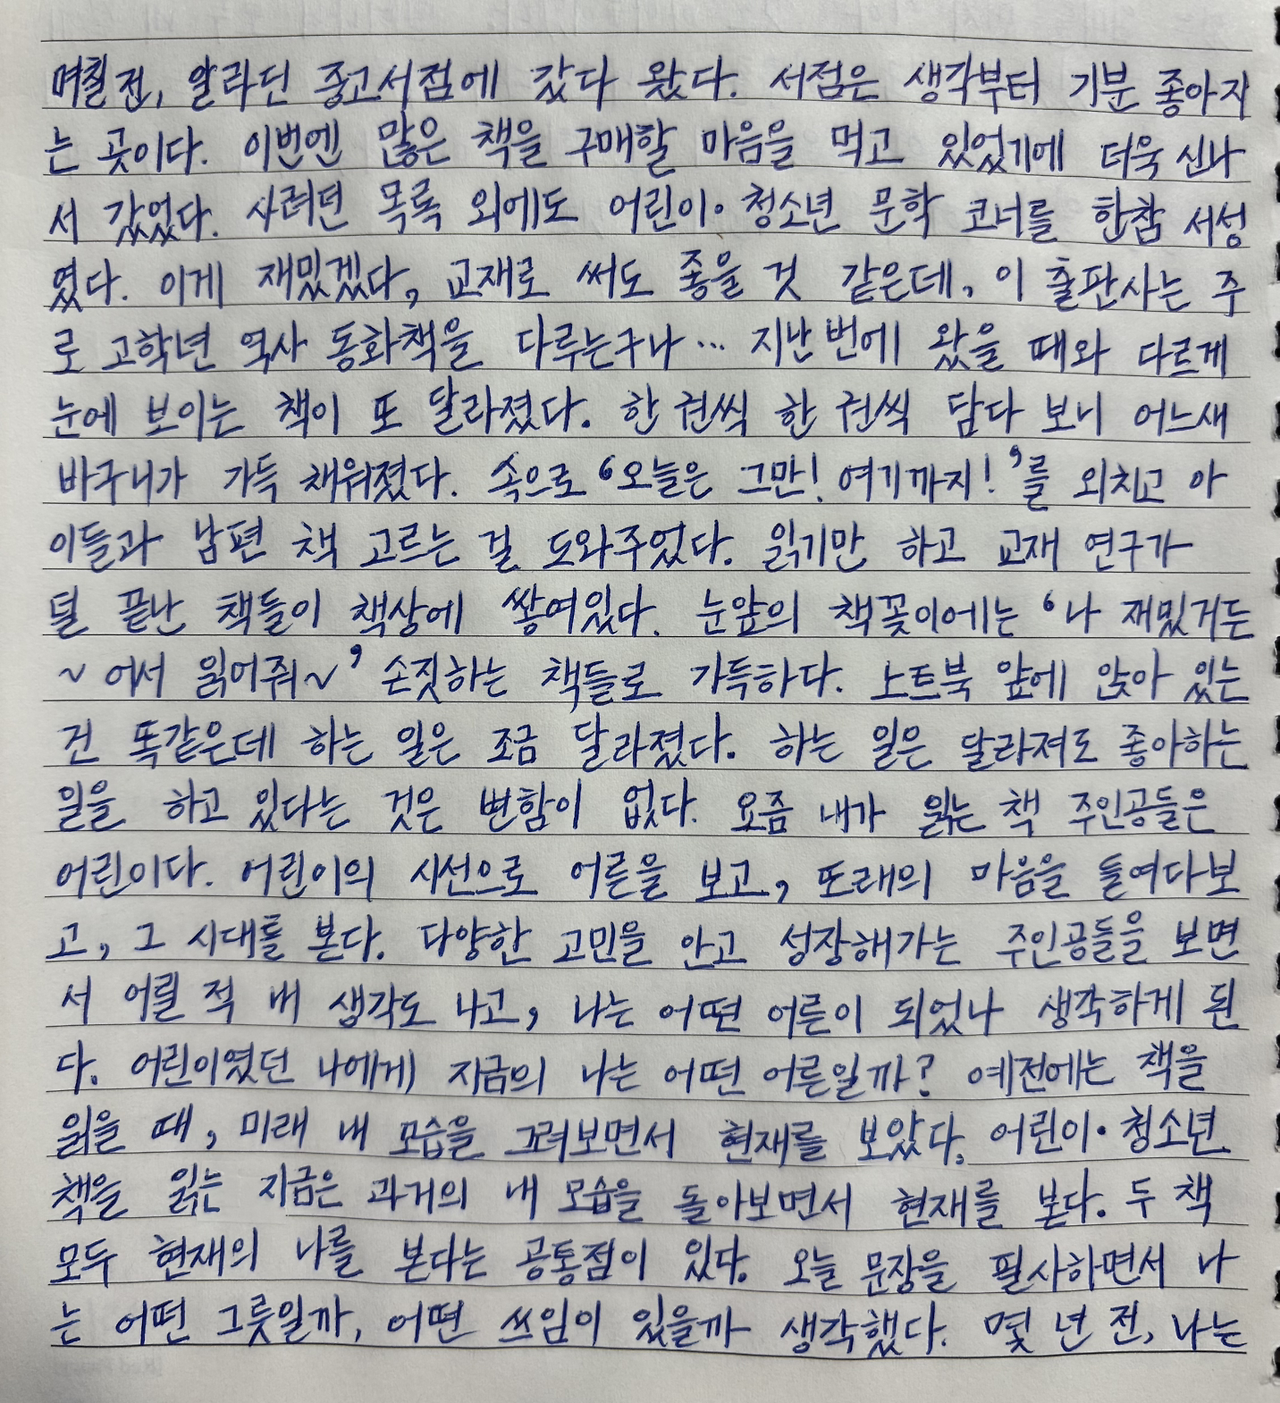 며칠 전, 알라딘 중고서점에 갔다 왔다. 서점은 생각부터 기분 좋아지
는 곳이다. 이번엔 많은 책을 구매할 마음을 먹고 있었기에 더욱 신나
서 갔었다. 사려던 목록 외에도 어린이·청소년 문학 코너를 한참 서성
였다. 이게 재밌겠다, 교재로 써도 좋을 것 같은데, 이 출판사는 주
로 고학년 역사 동화책을 다루는구나… 지난 번에 왔을 때와 다르게
눈에 보이는 책이 또 달라졌다. 한 권씩 한 권씩 담다 보니 어느새
바구니가 가득 채워졌다. 속으로 ‘오늘은 그만! 여기까지!’를 외치고 아
이들과 남편 책 고르는 걸 도와주었다. 읽기만 하고 교재 연구가
덜 끝난 책들이 책상에 쌓여있다. 눈앞의 책꽂이에는 ‘나 재밌거든
~ 어서 읽어줘~’ 손짓하는 책들로 가득하다. 노트북 앞에 앉아 있는
건 똑같은데 하는 일은 조금 달라졌다. 하는 일은 달라져도 좋아하는
일을 하고 있다는 것은 변함이 없다. 요즘 내가 읽는 책 주인공들은
어린이다. 어린이의 시선으로 어른을 보고, 또래의 마음을 들여다보
고, 그 시대를 본다. 다양한 고민을 안고 성장해가는 주인공들을 보면
서 어릴 적 내 생각도 나고, 나는 어떤 어른이 되었나 생각하게 된
다. 어린이였던 나에게 지금의 나는 어떤 어른일까? 예전에는 책을
읽을 때, 미래 내 모습을 그려보면서 현재를 보았다. 어린이·청소년
책을 읽는 지금은 과거의 내 모습을 돌아보면서 현재를 본다. 두 책
모두 현재의 나를 본다는 공통점이 있다. 오늘 문장을 필사하면서 나
는 어떤 그릇일까, 어떤 쓰임이 있을까 생각했다. 몇 년 전, 나는